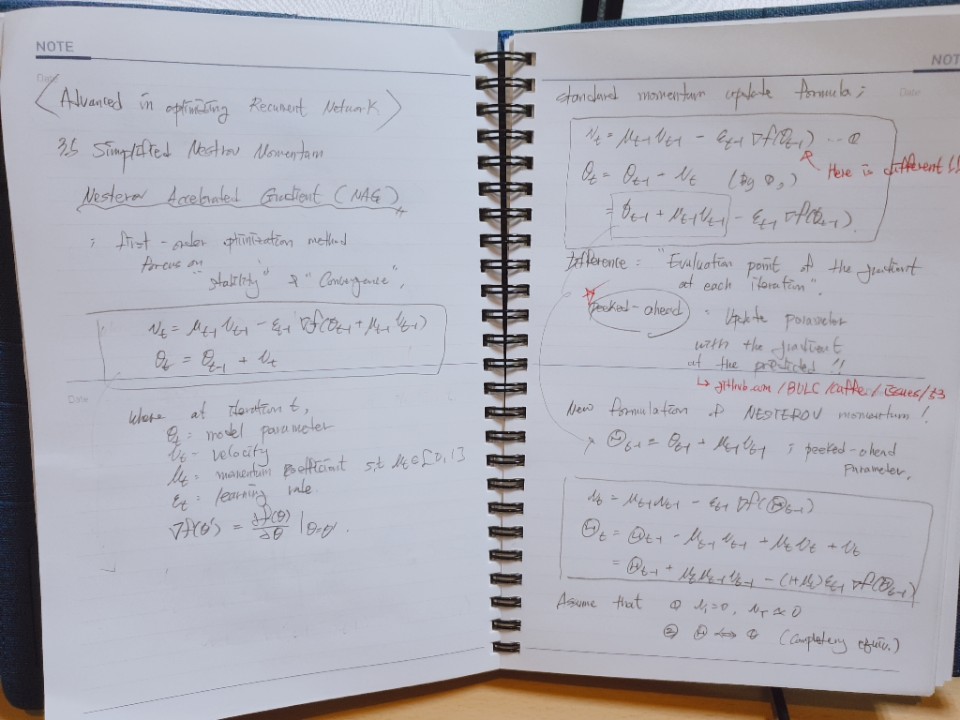 NOTE
Date
<Advanced in optimizing Recurrent Network>
3.5 Simplified Nestrov Momentum
Nesterov Accelerated Gradient (NAG)
; first-order optimization method
focus on "stability" & "Convergence".
v_t = μ_{t-1} v_{t-1} - ε_{t-1} ∇f(θ_{t-1} + μ_{t-1} v_{t-1})
θ_t = θ_{t-1} + v_t
Date
where at iteration t,
θ_t = model parameter
v_t = velocity
μ_t = momentum coefficient s,t μ_t ∈ [0,1]
ε_t = learning rate
∇f(θ') = ∂f(θ)/∂θ | θ=θ'.
NOT
Date
standard momentum update formula;
v_t = μ_{t-1} v_{t-1} - ε_{t-1} ∇f(θ_{t-1}) ... ①
Here is different !!
θ_t = θ_{t-1} - v_t (by ①,)
= θ_{t-1} + μ_{t-1} v_{t-1} - ε_{t-1} ∇f(θ_{t-1}).
Difference: "Evaluation point of the gradient
at each iteration".
* peeked-ahead : Update parameter
with the gradient
at the predicted !!
↳ github.com/BVLC/caffe/issues/53
New formulation of NESTEROV momentum!
Θ_{t-1} = θ_{t-1} + μ_{t-1} v_{t-1} ; peeked-ahead
parameter.
v_t = μ_{t-1} v_{t-1} - ε_{t-1} ∇f(Θ_{t-1})
Θ_t = Θ_{t-1} - μ_{t-1} v_{t-1} + μ_t v_t + v_t
= Θ_{t-1} + μ_t μ_{t-1} v_{t-1} - (1+μ_t) ε_{t-1} ∇f(Θ_{t-1})
Assume that ① v_1 = 0, v_T ≃ 0
② Θ ⟺ θ (completely equiv.)